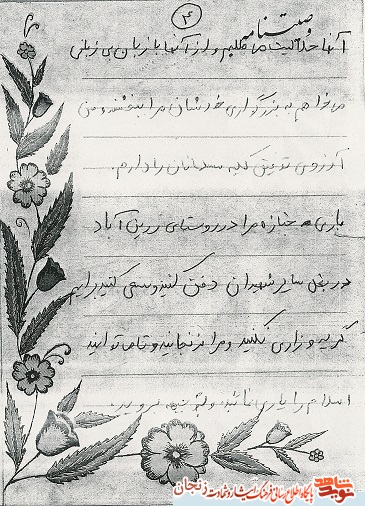 ۴
وصیتنامه
آنها حلالیت می طلبم و از آنها با زبان بی زبانی
می خواهم به بزرگواری خودشان مرا ببخشند و من
آرزوی توفیق کلیه مسلمانان را دارم.
باری جنازه مرا در روستای زرین آباد
در بغل سایر شهیدان دفن کنید و سعی کنید برایم
گریه و زاری نکنید و مرا نرنجانید و تا می توانید
اسلام را یاری نمائید و
پایگاه اطلاع رسانی فرهنگ ایثار و شهادت زنجان
نوید شاهد